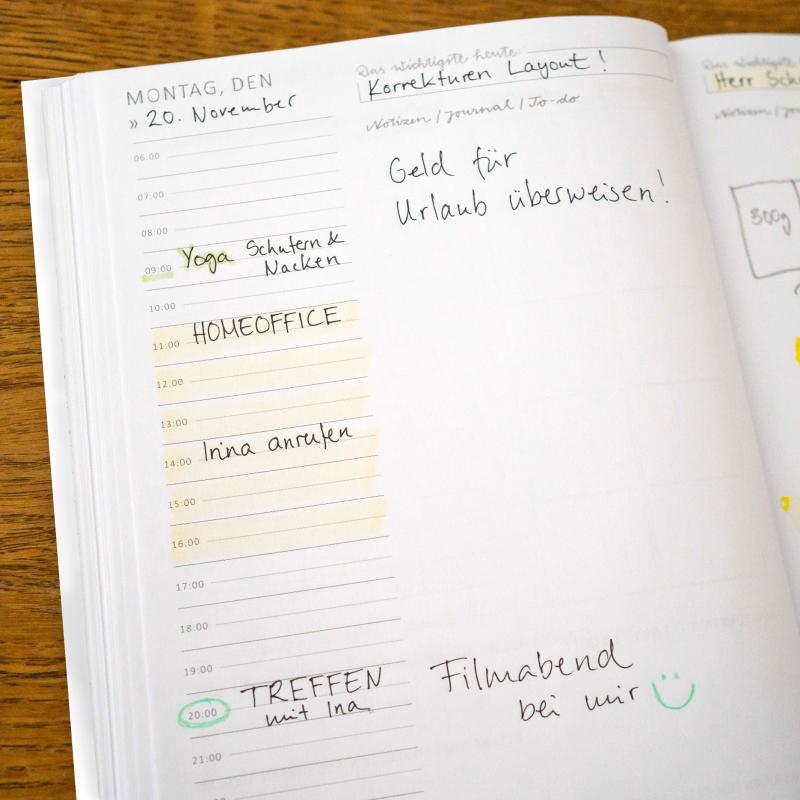 MONTAG, DEN
» 20. November
Das wichtigste heute:
Korrekturen Layout!
Notizen / Journal / To-do
06:00
07:00
08:00
09:00 Yoga Schultern &
Nacken
10:00
HOMEOFFICE
11:00
12:00
13:00
14:00 Irina anrufen
15:00
16:00
17:00
18:00
19:00
20:00 TREFFEN
mit Ina
21:00
Geld für
Urlaub überweisen!
Filmabend
bei mir
Das wichtigste
Herr
300g